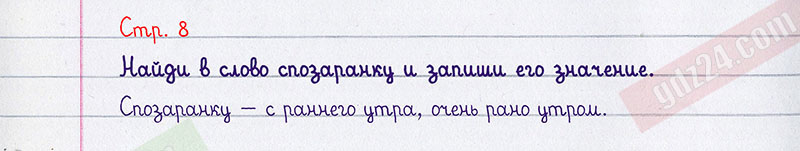 Стр. 8
Найди в слово спозаранку и запиши его значение.
Спозаранку — с раннего утра, очень рано утром.
gdz24.com